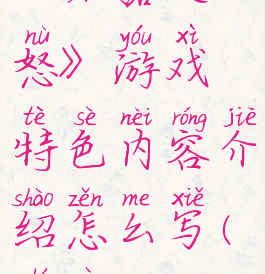 nù yóu xì
怒》游戏
tè sè nèi róng jiè
特色内容介
shào zěn me xiě
绍怎么写(